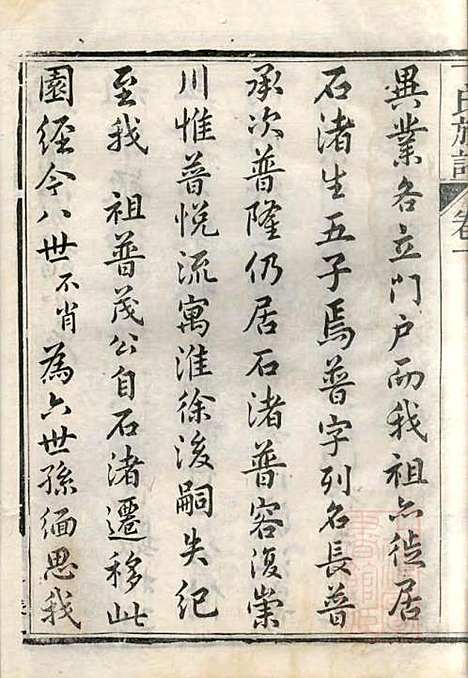 異業各立門户而我祖亦徙居
石渚生五子焉普字列名長普
承次普隆仍居石渚普容復崇
川惟普悦流寓淮徐後嗣失紀
至我 祖普茂公自石渚遷移此
園經今八世不肖為六世孫緬思我
氏族譜
卷一